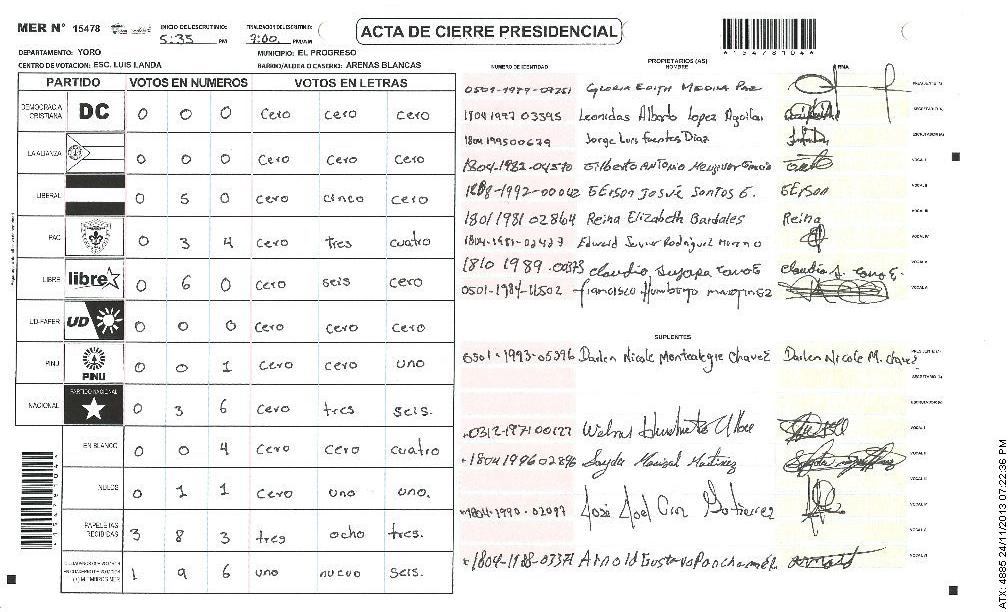 MER N° 15478 INICIO DEL ESCRUTINIO: 5:35 PM FINALIZACION DEL ESCRUTINIO: 7:00 PM/AM
ACTA DE CIERRE PRESIDENCIAL
*15478104*
DEPARTAMENTO: YORO MUNICIPIO: EL PROGRESO
CENTRO DE VOTACION: ESC. LUIS LANDA BARRIO/ALDEA O CASERIO: ARENAS BLANCAS
PARTIDO VOTOS EN NUMEROS VOTOS EN LETRAS
DEMOCRACIA CRISTIANA DC 0 0 0 Cero cero cero
LA ALIANZA 0 0 0 Cero Cero Cero
LIBERAL 0 5 0 Cero cinco cero
PAC 0 3 4 Cero tres cuatro
LIBRE libre 0 6 0 Cero seis cero
UD-FAPER UD 0 0 0 Cero Cero Cero
PINU PINU 0 0 1 Cero cero uno
NACIONAL PARTIDO NACIONAL 0 3 6 Cero tres seis.
EN BLANCO 0 0 4 Cero Cero cuatro
NULOS 0 1 1 Cero uno uno.
PAPELETAS RECIBIDAS 3 8 3 tres ocho tres.
1 9 6 uno nuevo seis.
NUMERO DE IDENTIDAD PROPIETARIOS (AS) NOMBRE FIRMA
Gloria Edith Medina Paz
1804 1997 03595 Leonidas Alberto Lopez Aguilar
1804 199500679 Jorge Luis Fuentes Diaz
1804-1982-04570 Gilberto Antonio
Gerson Josué Santos G. Gerson
1801 1981 02864 Reina Elizabeth Bardales Reina
Rodriguez
1810 1989 00373 Claudia
0501-1984-11502 Francisco Humberto Martinez
SUPLENTES
0501-1993-05396 Darlen Nicole Montealegre Chavez Darlen Nicole M. Chavez
0312-1971 00127
1804199602896 Sayda Marisol Martinez
1804-1990-02097 José Joel Cruz Gutierrez
1804-1988-03371 Arnold Gustavo
ATX: 4885 24/11/2013 07:22:36 PM